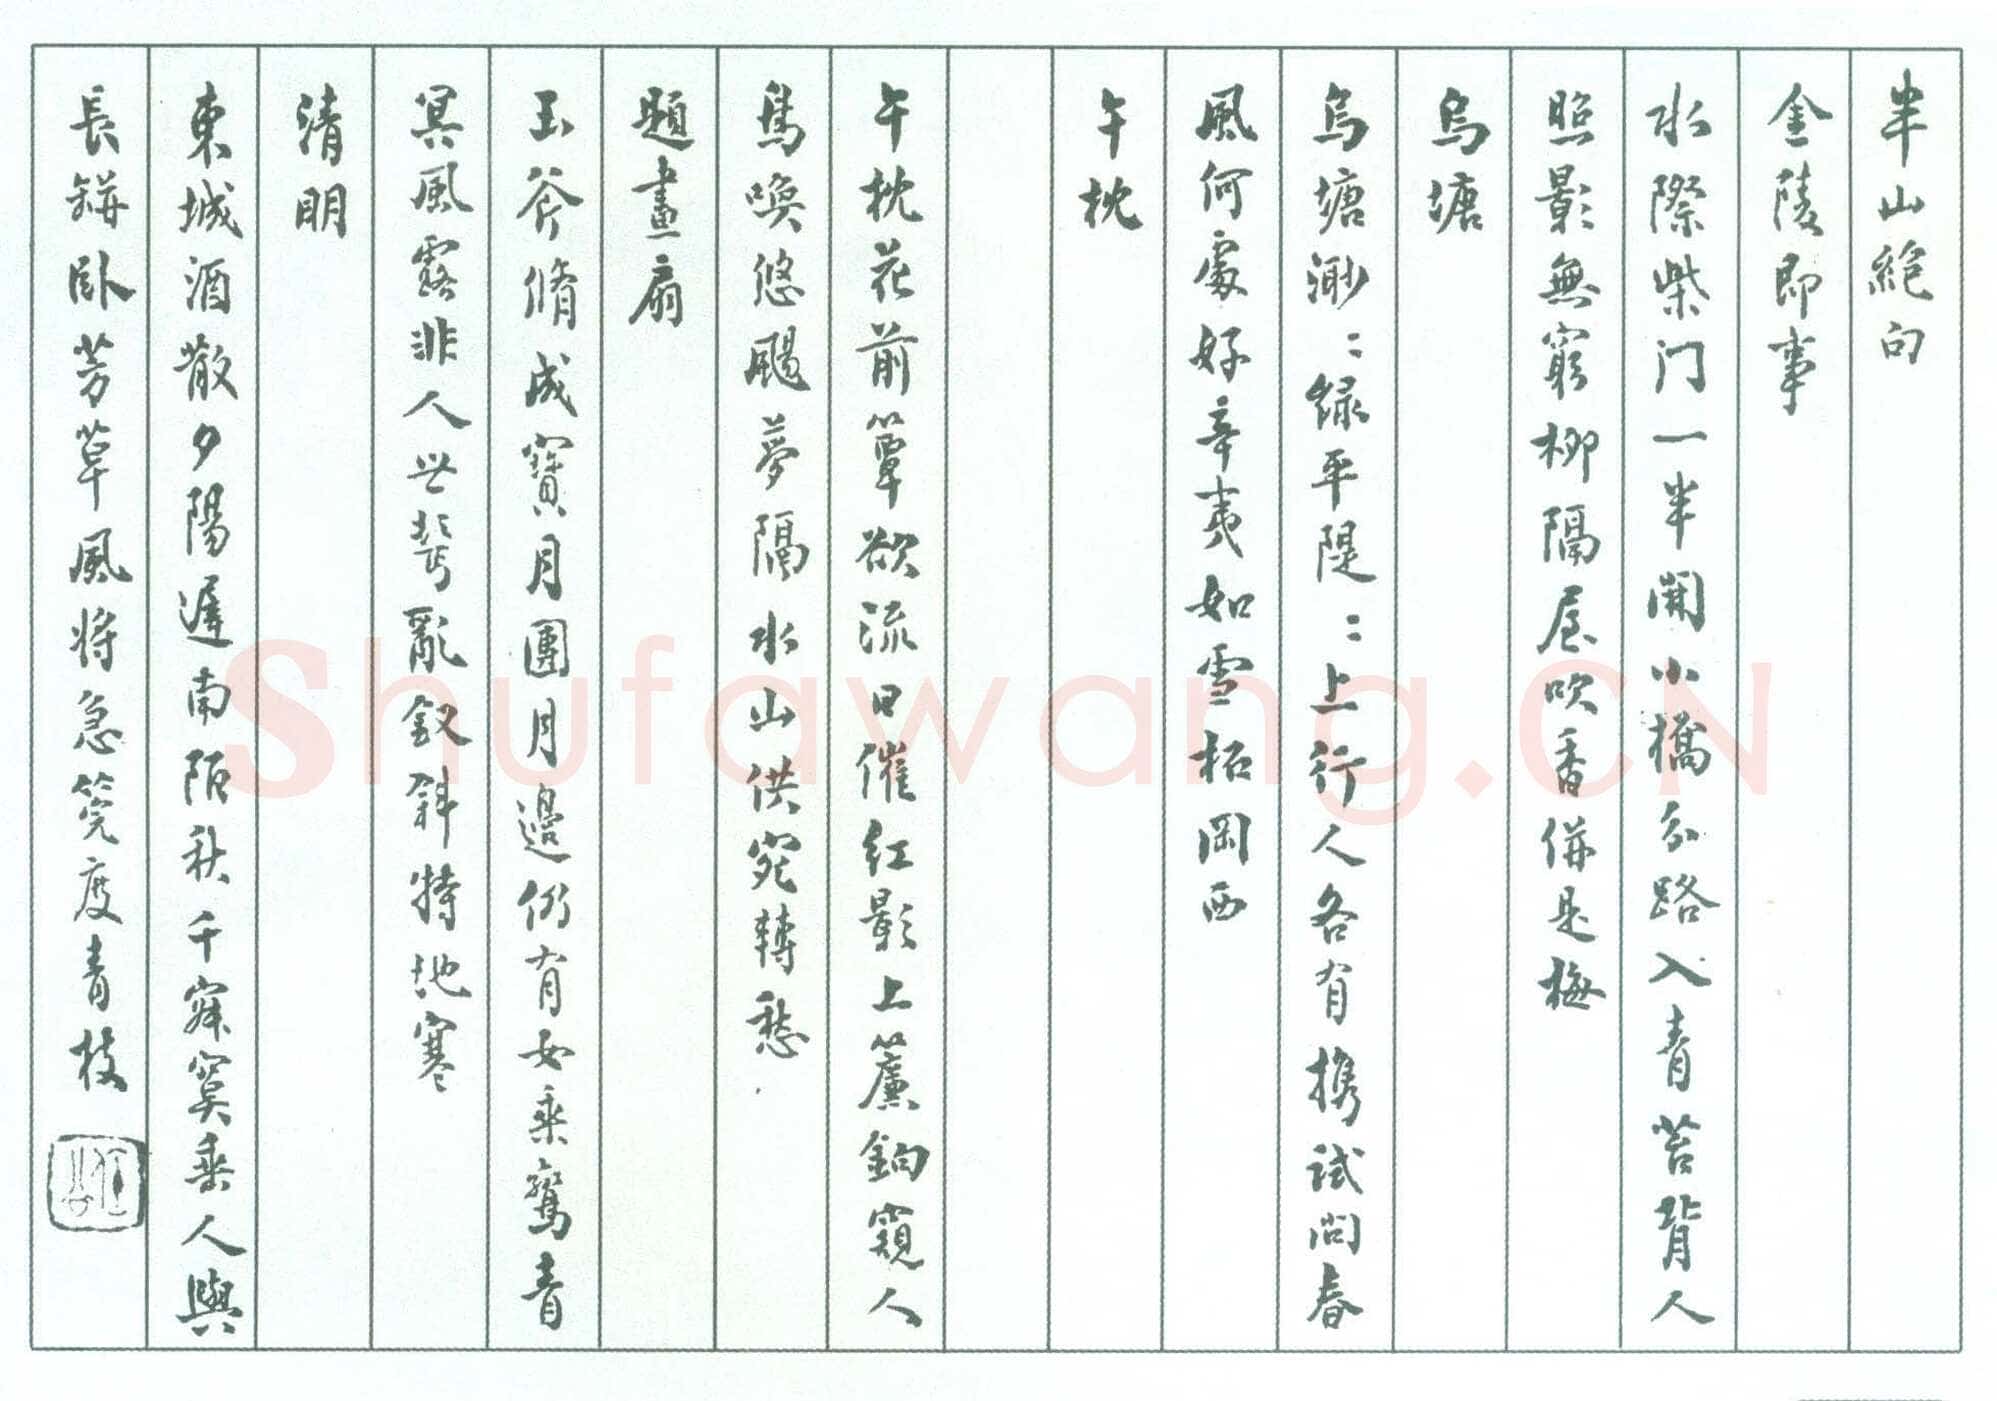 半山絕句
金陵即事
水際柴门一半開小橋分路入青苔背人
照影無窮柳隔屋吹香併是梅
烏塘
烏塘渺：綠平隄：上行人各有攜試問春
風何處好辛夷如雪柘岡西
午枕
午枕花前簟欲流日催紅影上簾鉤窺人
鳥喚悠颺夢隔水山供宛轉愁
題畫扇
玉斧脩成寶月團月邊仍有女乘鸞青
冥風露非人世鬢亂釵斜特地寒
清明
東城酒散夕陽遲南陌秋千寂寞垂人與
長缾臥芳草風將急筦度青枝
Shufawang.CN